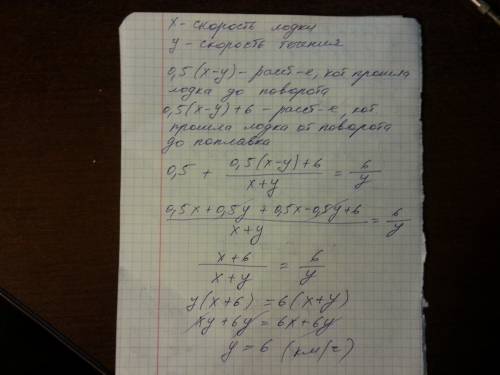 x - скорость лодки
y - скорость течения
0,5(x-y) - расст-е, кот прошла
лодка до поворота
0,5(x-y)+6 - расст-е, кот
прошла лодка от поворота
до поплавка
0,5 + (0,5(x-y)+6)/(x+y) = 6/y
(0,5x+0,5y+0,5x-0,5y+6)/(x+y) = 6/y
(x+6)/(x+y) = 6/y
y(x+6)=6(x+y)
xy+6y=6x+6y
y=6 (км/г)